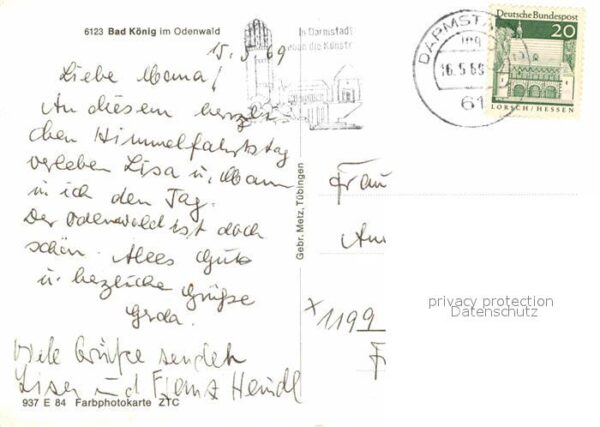 6123 Bad König im Odenwald
15.5.69
Liebe Mama!
An diesem herzli
chen Himmelfahrtstag
verleben Lisa u. Mann
u. ich den Tag.
Der Odenwald ist doch
schön. Alles Gute
u. herzliche Grüße
Gerda.
Viele Grüße senden
Lisa und Franz
937 E 84 Farbphotokarte ZTC
Gebr. Metz, Tübingen
In Darmstadt
die Künste
DARMSTA
16.5.69
61
Deutsche Bundespost
20
LORSCH/HESSEN
Frau
x 1199
privacy protection
Datenschutz